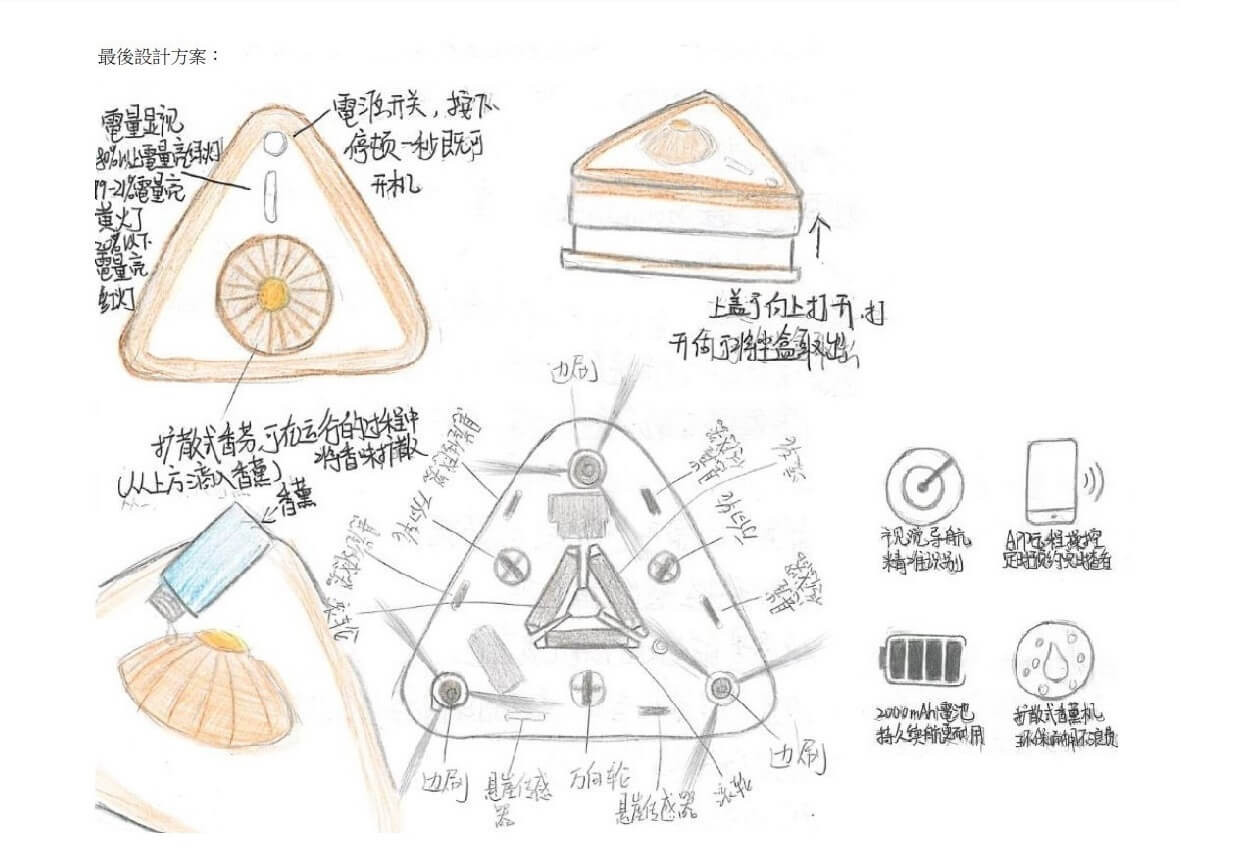 最後設計方案：
電量显视
80%以上電量亮绿灯
79-21%電量亮
黄灯
20%以下
電量亮
红灯
電源开关，按下
停顿一秒既可
开机
上盖子向上打开，打
开
扩散式香芬，可在运行的过程中
将香味扩散
(从上方滴入香薰)
香薰
边刷
悬崖传感器
万向轮
悬崖传感器
滚轮
悬崖传感器
万向轮
悬崖传感器
边刷
悬崖传感
器
万向轮
悬崖传感器
滚轮
边刷
视觉导航
精准识别
APP远程操控
2000mAh電池
持久续航更耐用
扩散式香薰机